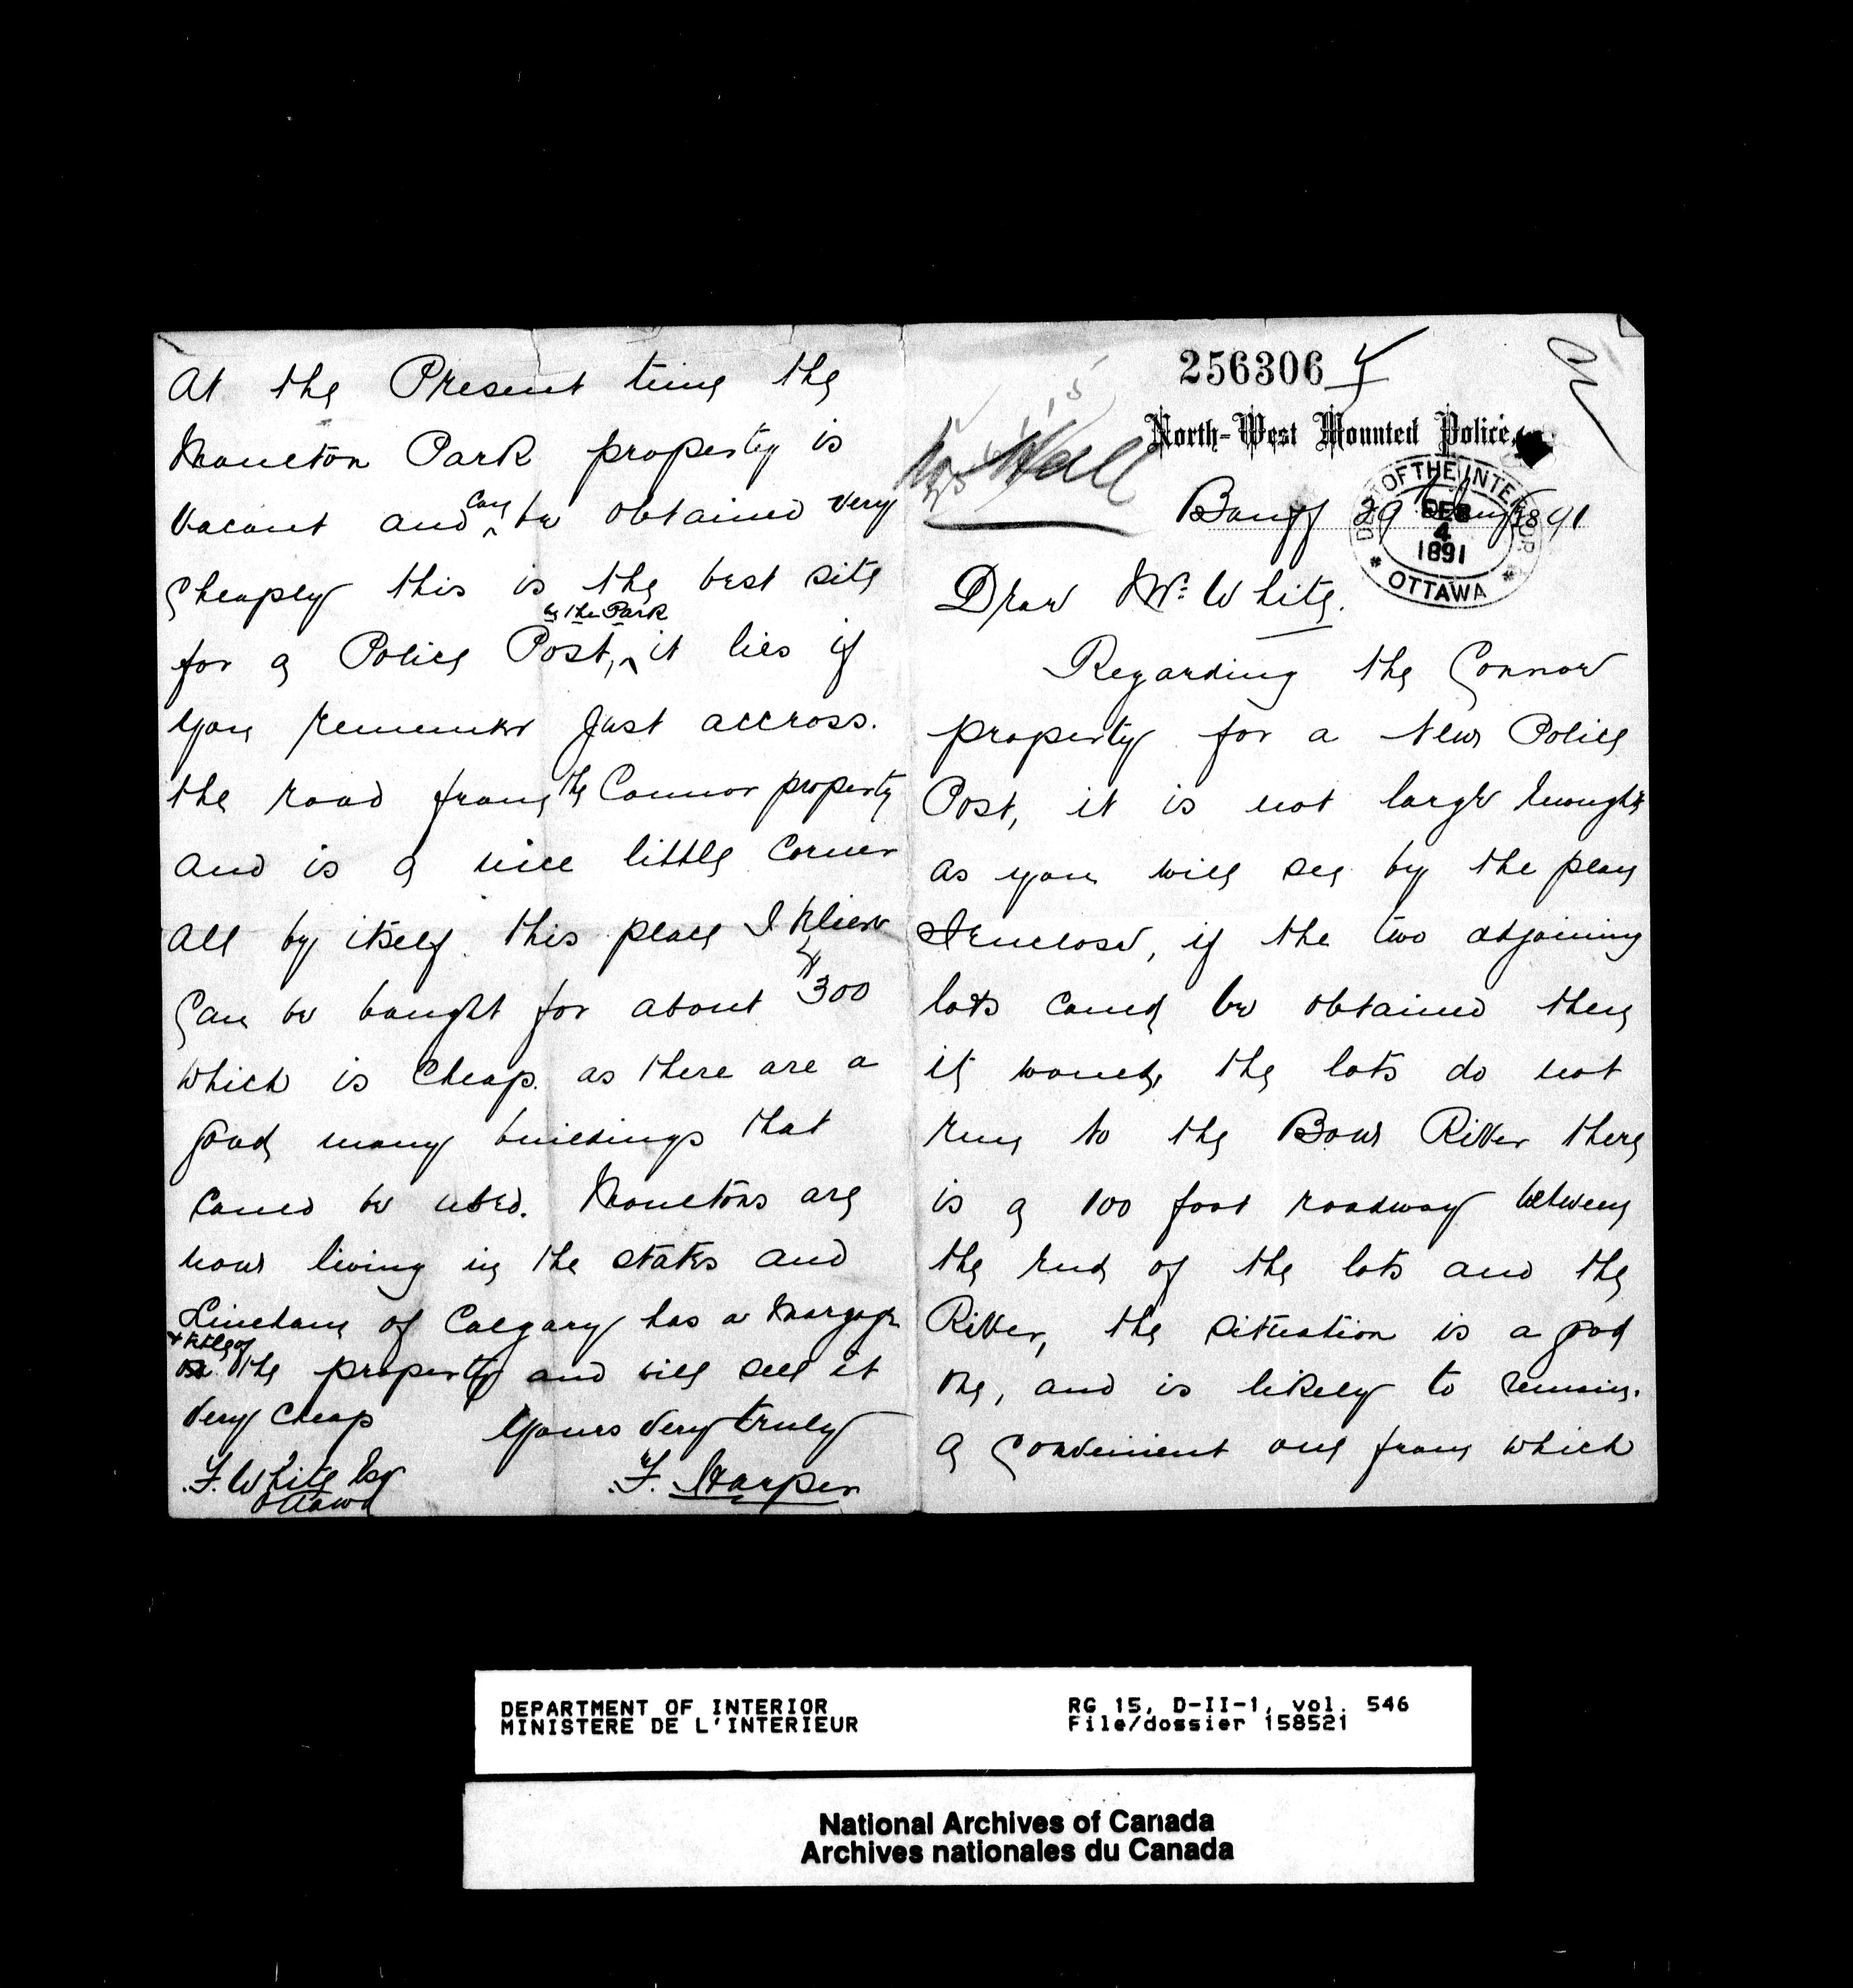 256306
Mr Hall
North-West Mounted Police,
Banff 29 1891
DEPT OF THE INTERIOR
DEC
4
1891
* OTTAWA *
Dear Mr. White.
Regarding the Connor
property for a New Police
Post, it is not large enough
as you will see by the plan
I enclose, if the two adjoining
lots could be obtained then
it would, the lots do not
run to the Bow River there
is a 100 foot roadway between
the end of the lots and the
River, the situation is a good
one, and is likely to remain.
a convenient one from which
At the Present time the
Moulton Park property is
vacant and can be obtained very
cheaply this is the best site
for a Police Post, in the Park it lies if
you remember Just accross.
the road from the Connor property
and is a nice little corner
all by itself. this place I believe
can be bought for about $300
which is cheap. as there are a
good many buildings that
could be used. Moultons are
now living in the states and
Lineham of Calgary has a Morgage
+ title of the property and will sell it
very cheap
Yours very truly
F. Harper
F. White Esq
Ottawa
DEPARTMENT OF INTERIOR
MINISTERE DE L'INTERIEUR
RG 15, D-II-1, vol. 546
File/dossier 158521
National Archives of Canada
Archives nationales du Canada